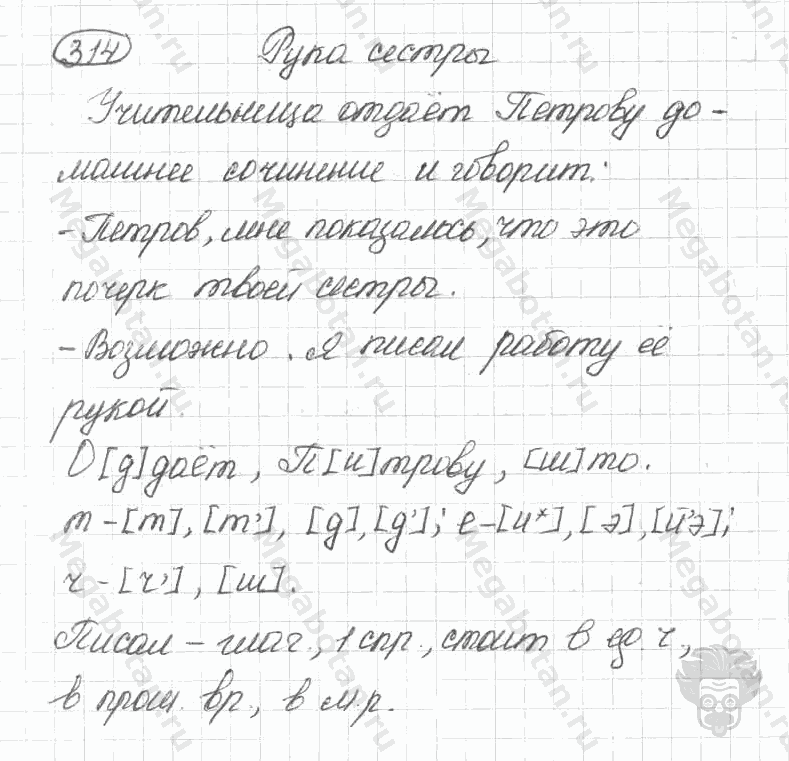 314 Рука сестры
Учительница отдаёт Петрову до-
машнее сочинение и говорит:
- Петров, мне показалось, что это
почерк твоей сестры.
- Возможно. Я писал работу её
рукой.
О[д]даёт, П[и]трову, [ш]то.
т - [т], [т'], [д], [д']; е - [и*], [э], [й'э];
ч - [ч'], [ш].
Писал - глаг., 1 спр., стоит в ед. ч,
в прош. вр., в м.р.
Megabotan.ru